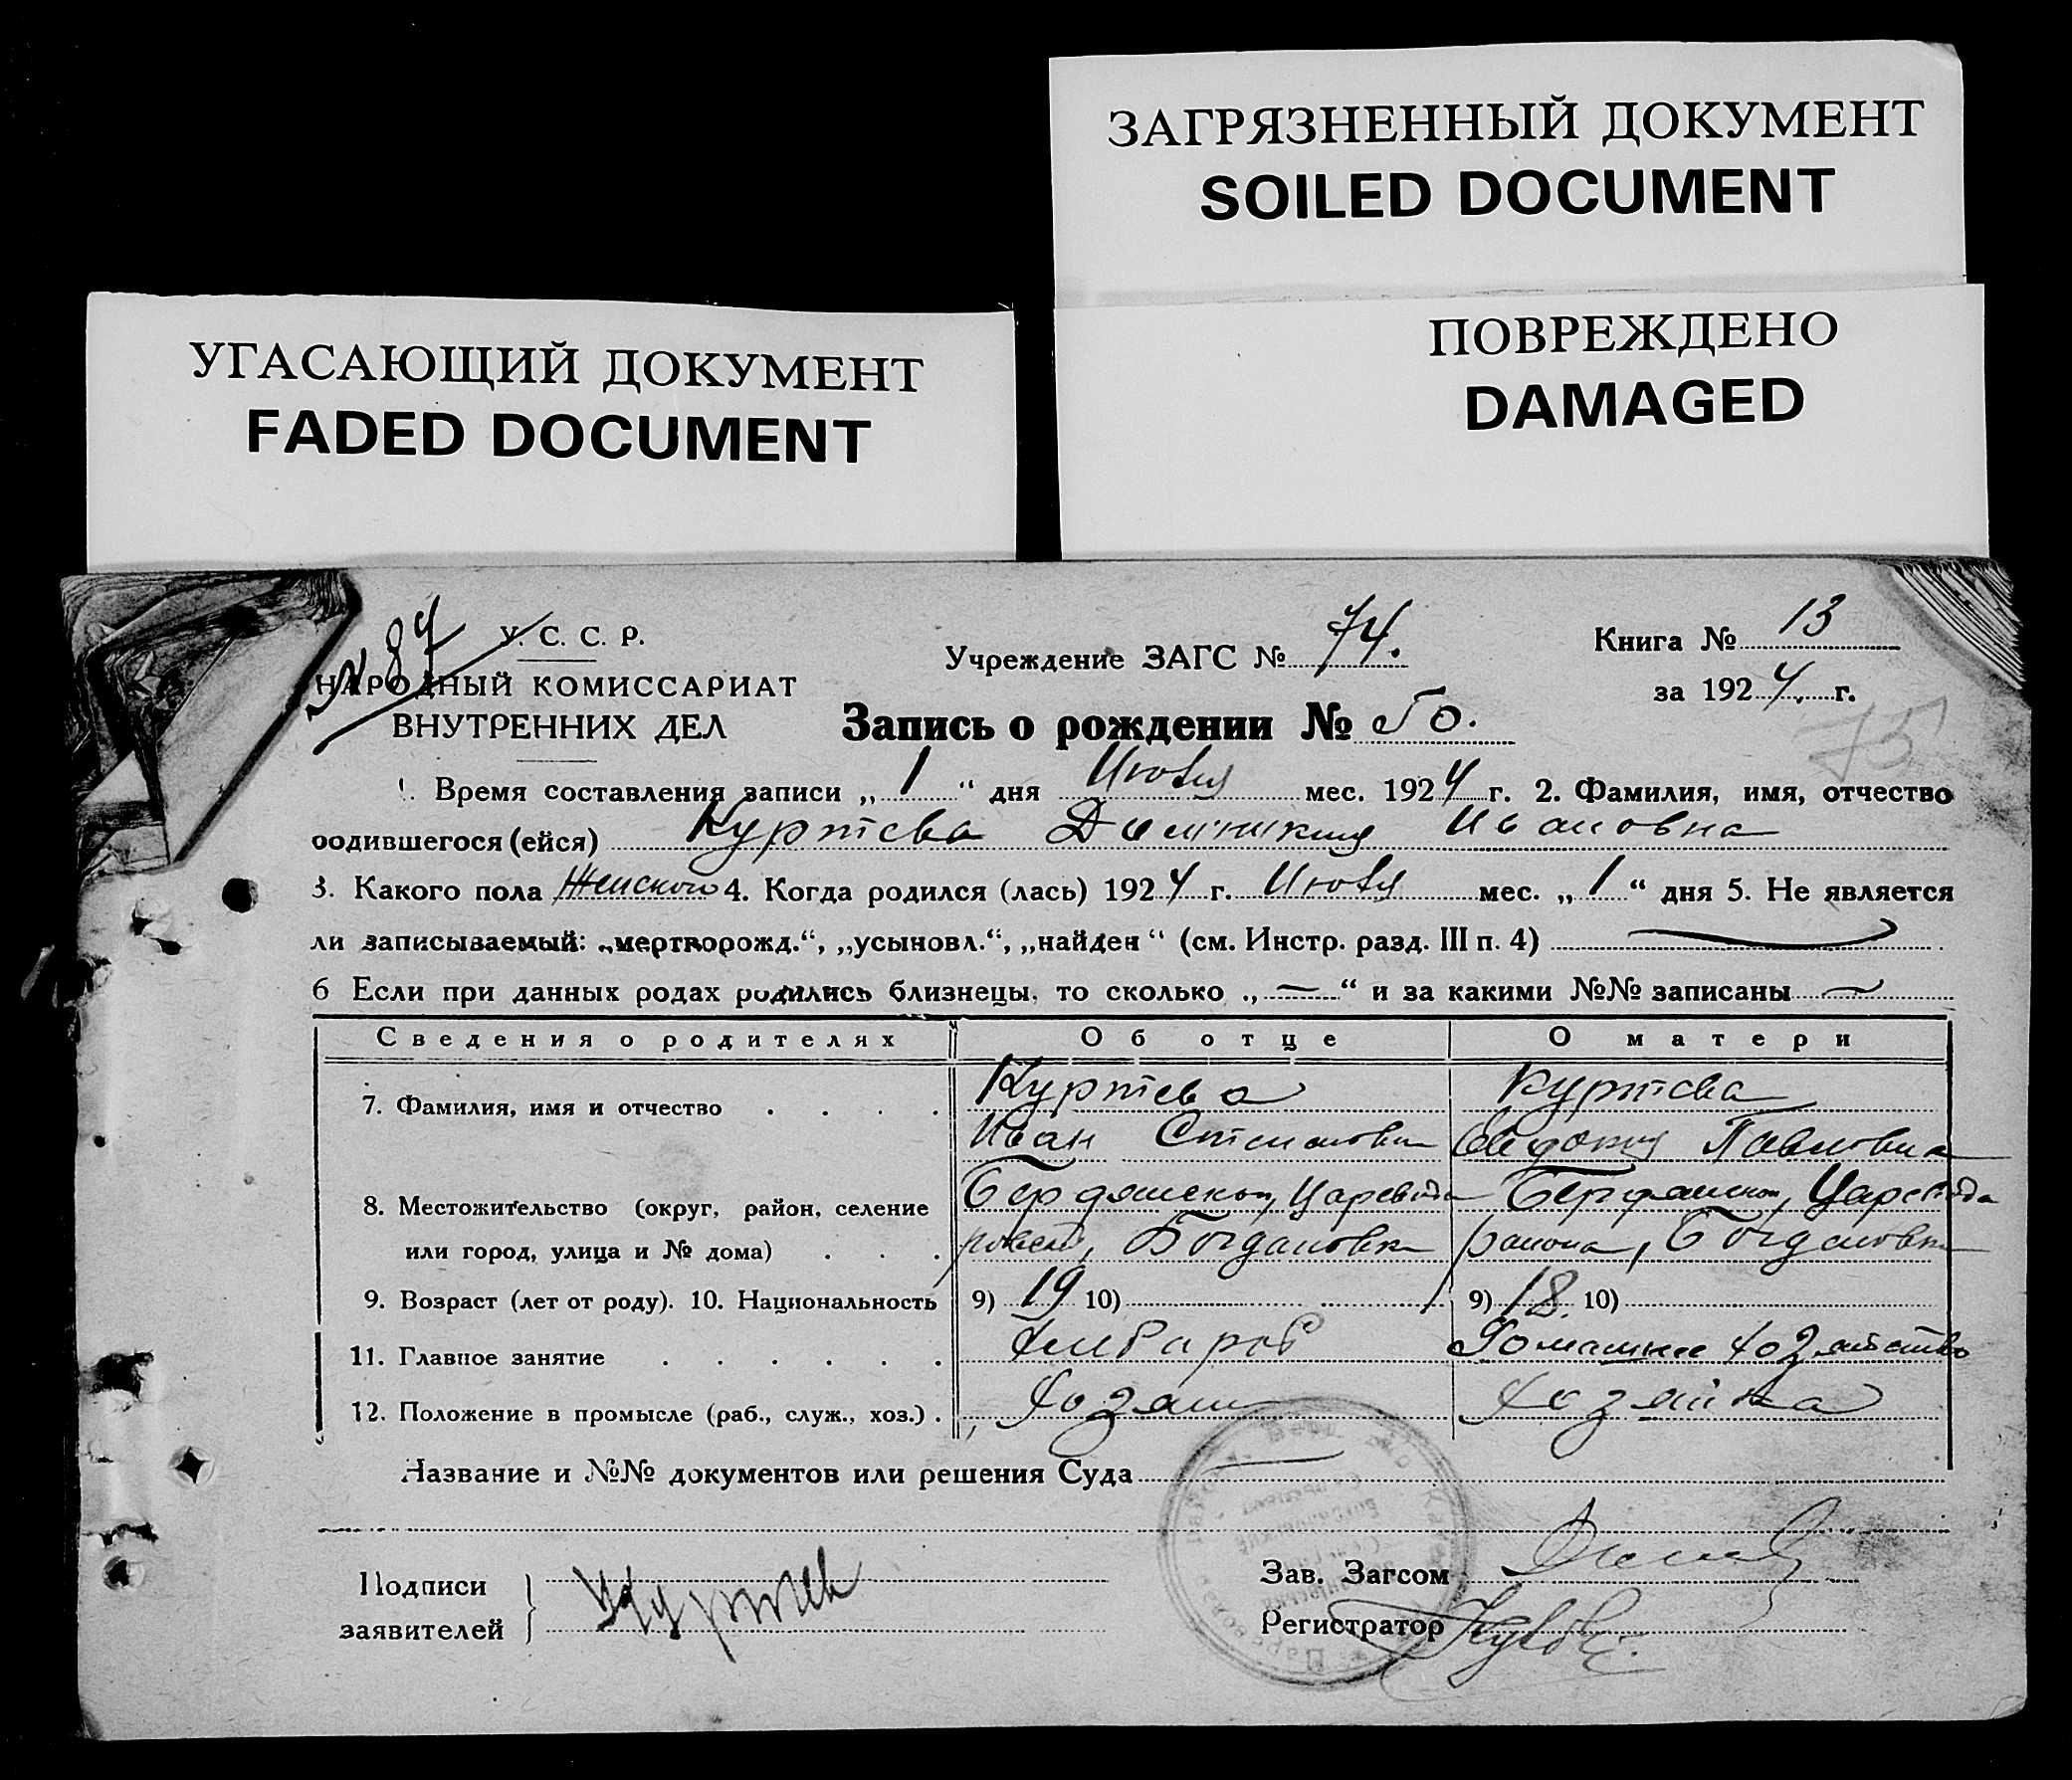 ЗАГРЯЗНЕННЫЙ ДОКУМЕНТ
SOILED DOCUMENT
УГАСАЮЩИЙ ДОКУМЕНТ
FADED DOCUMENT
ПОВРЕЖДЕНО
DAMAGED
№ 87
У. С. С. Р.
НАРОДНЫЙ КОМИССАРИАТ
ВНУТРЕННИХ ДЕЛ
Учреждение ЗАГС № 74.
Книга № 13
за 1924 г.
Запись о рождении № 50.
75
1. Время составления записи „ 1 “ дня Июля мес. 1924 г. 2. Фамилия, имя, отчество
родившегося (ейся) Куртева Домникия Ивановна
3. Какого пола Женского 4. Когда родился (лась) 1924 г. Июля мес. „ 1 “ дня 5. Не является
ли записываемый: „мертворожд.“, „усыновл.“, „найден“ (см. Инстр. разд. III п. 4)
6 Если при данных родах родились близнецы, то сколько „ — “ и за какими №№ записаны —
Сведения о родителях Об отце О матери
7. Фамилия, имя и отчество Куртева Куртева
Иван Степанович Евдокия Павловна
8. Местожительство (округ, район, селение Бердянском, Царевода Бердянском, Царевода
или город, улица и № дома) Богдановка района, Богдановка
9. Возраст (лет от роду). 10. Национальность 9) 19 10) 9) 18. 10)
11. Главное занятие Хлебороб Домашнее хозяйство
12. Положение в промысле (раб., служ., хоз.) Хозяин Хозяйка
Название и №№ документов или решения Суда —
Подписи
заявителей
Куртев
Зав. Загсом
Регистратор